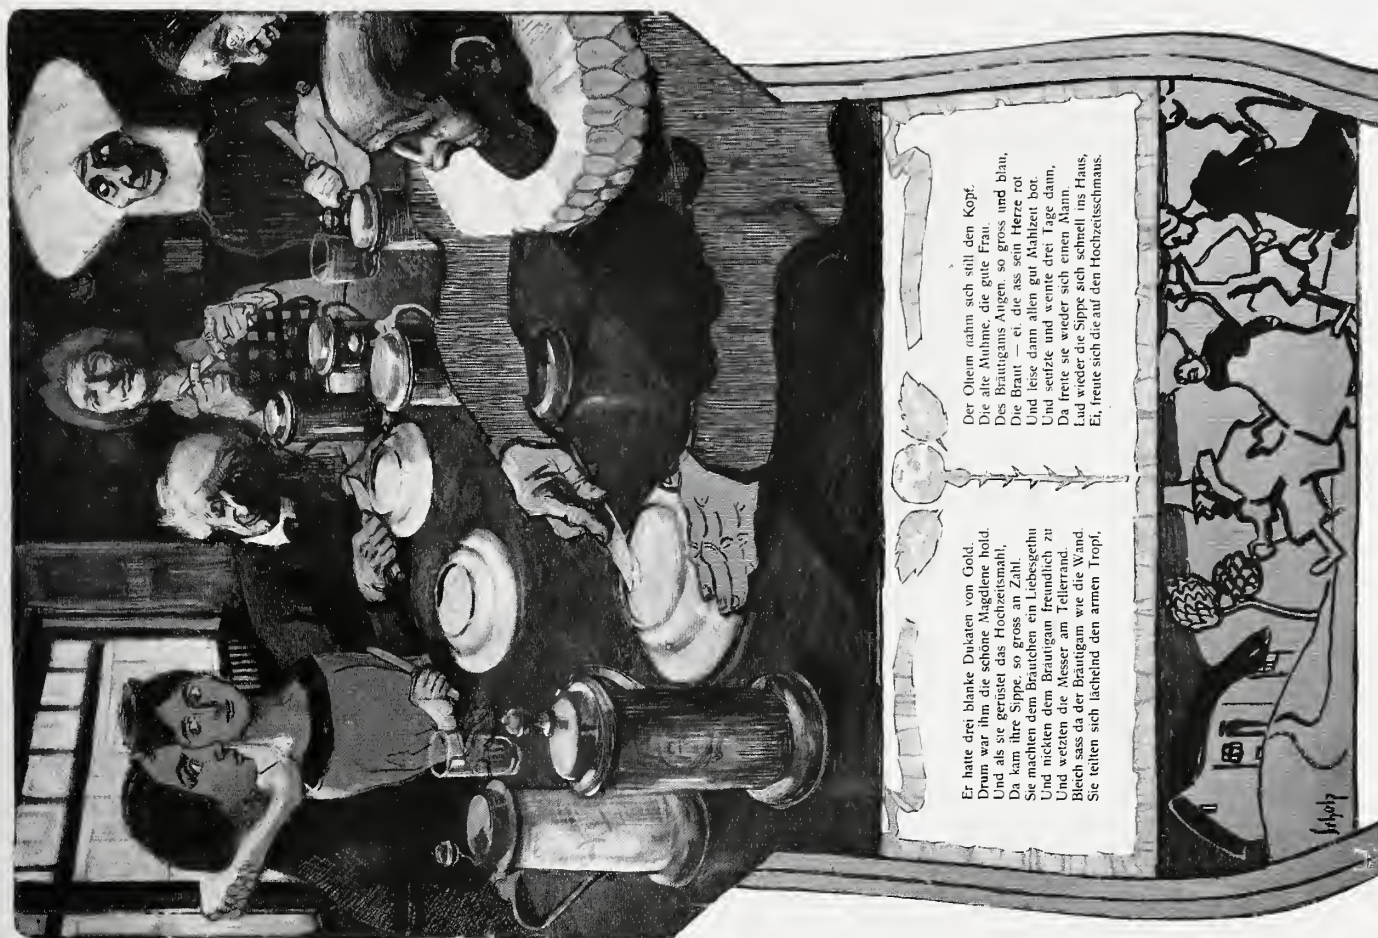 Er hatte drei blanke Dukaten von Gold.
Drum war ihm die schöne Magdlene hold.
Und als sie gerüstet das Hochzeitsmahl,
Da kam ihre Sippe, so gross an Zahl.
Sie machten dem Bräutchen ein Liebesgethu
Und nickten dem Bräutigam freundlich zu
Und wetzten die Messer am Tellerrand.
Bleich sass da der Bräutigam wie die Wand.
Sie teilten sich lächelnd den armen Tropf,
Der Oheim nahm sich still den Kopf.
Die alte Muhme, die gute Frau.
Des Bräutigams Augen, so gross und blau,
Die Braut — ei, die ass sein Herze rot
Und leise dann allen gut Mahlzeit bot.
Und seufzte und weinte drei Tage dann,
Da freite sie wieder sich einen Mann.
Lud wieder die Sippe sich schnell ins Haus,
Ei, freute sich die auf den Hochzeitsschmaus.